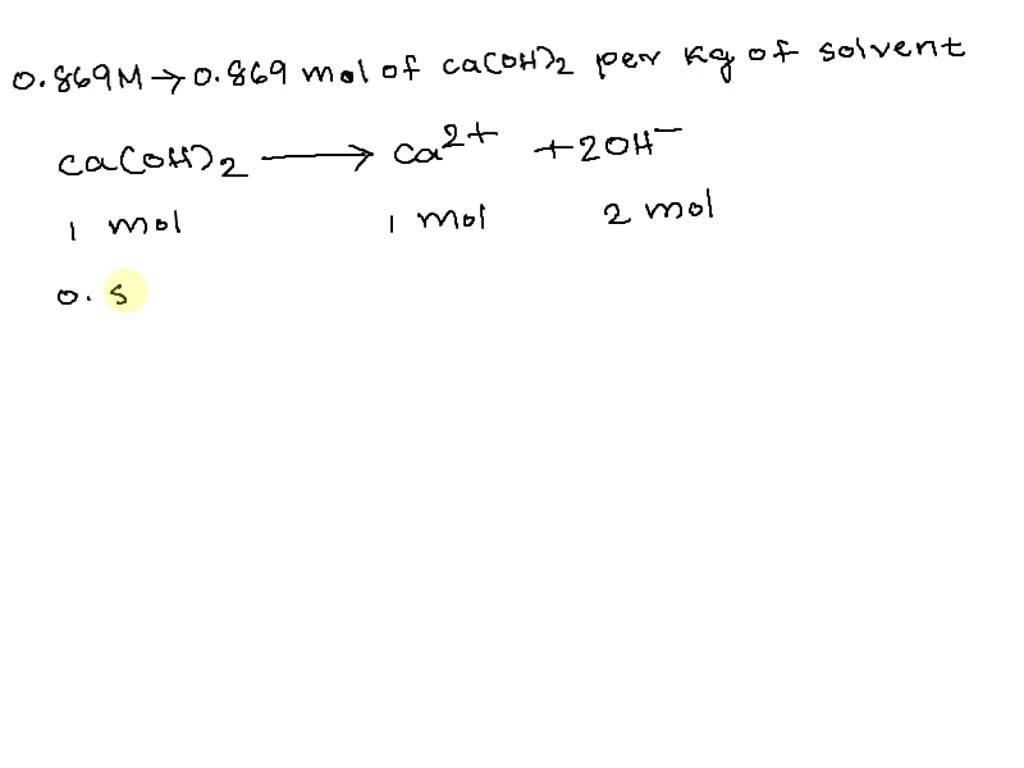 0.869M → 0.869 mol of ca(OH)2 per kg of solvent
ca(OH)2 → ca2+ + 2OH−
1 mol 1 mol 2 mol
0. 8